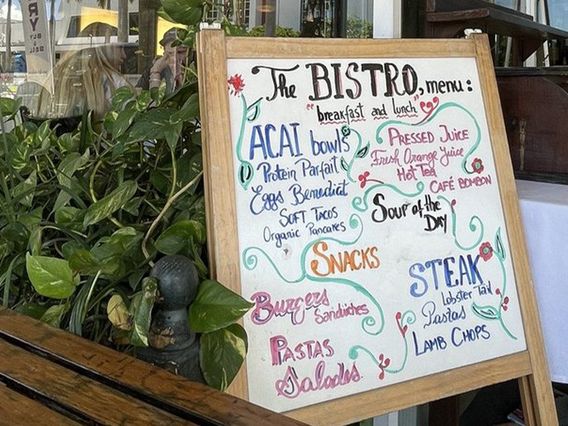 The BISTRO, menu:
"breakfast and lunch"
ACAI bowls
Protein Parfait
Eggs Benedict
SOFT TACOS
Organic Pancakes
PRESSED Juice
Fresh Orange Juice
Hot Tea
CAFÉ BOMBON
Soup of the Day
SNACKS
Burgers
Sandwiches
PASTAS
Salades
STEAK
Lobster Tail
Pastas
LAMB CHOPS